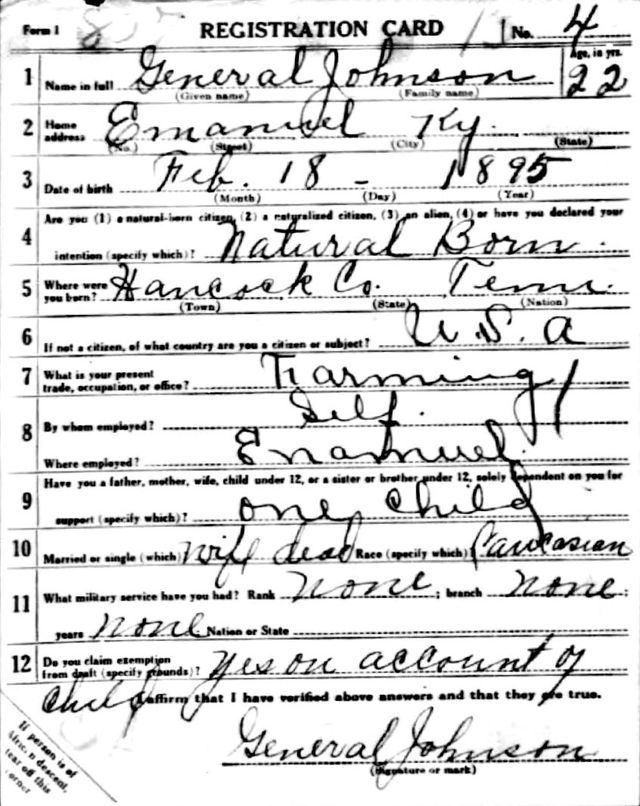 Form 1 8 REGISTRATION CARD No. 4
1 Name in full General Johnson Age, in yrs. 22
(Given name) (Family name)
2 Home address Emanuel Ky.
(No.) (Street) (City) (State)
3 Date of birth Feb. 18 - 1895
(Month) (Day) (Year)
4 Are you (1) a natural-born citizen, (2) a naturalized citizen, (3) an alien, (4) or have you declared your
intention (specify which)? Natural Born.
5 Where were you born? Hancock Co. Tenn.
(Town) (State) (Nation)
6 If not a citizen, of what country are you a citizen or subject? U.S.a
7 What is your present trade, occupation, or office? Farming
8 By whom employed? Self.
Where employed? Enamuel.
9 Have you a father, mother, wife, child under 12, or a sister or brother under 12, solely dependent on you for
support (specify which)? one child
10 Married or single (which) wife dead Race (specify which)? Caucasian
11 What military service have you had? Rank none; branch none;
years none Nation or State
12 Do you claim exemption from draft (specify grounds)? Yes on account of
child I affirm that I have verified above answers and that they are true.
General Johnson
(Signature or mark)
If person is of
African descent,
tear off this
corner